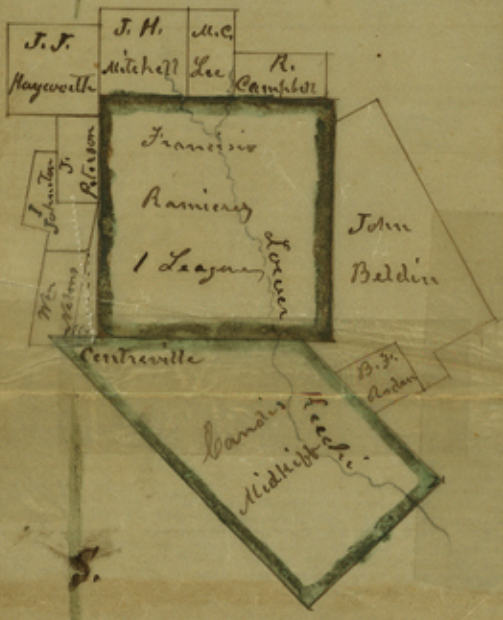 J. J.
Hayworth
J. H.
Mitchell
M. C.
Lee
R.
Campbell
J.
Peterson
J
Johnston
Wm
Nelson
Francisco
Ramierez
1 League
Lower
Keechi
John
Beldin
Centreville
B. F.
Candis
Midkiff
S.